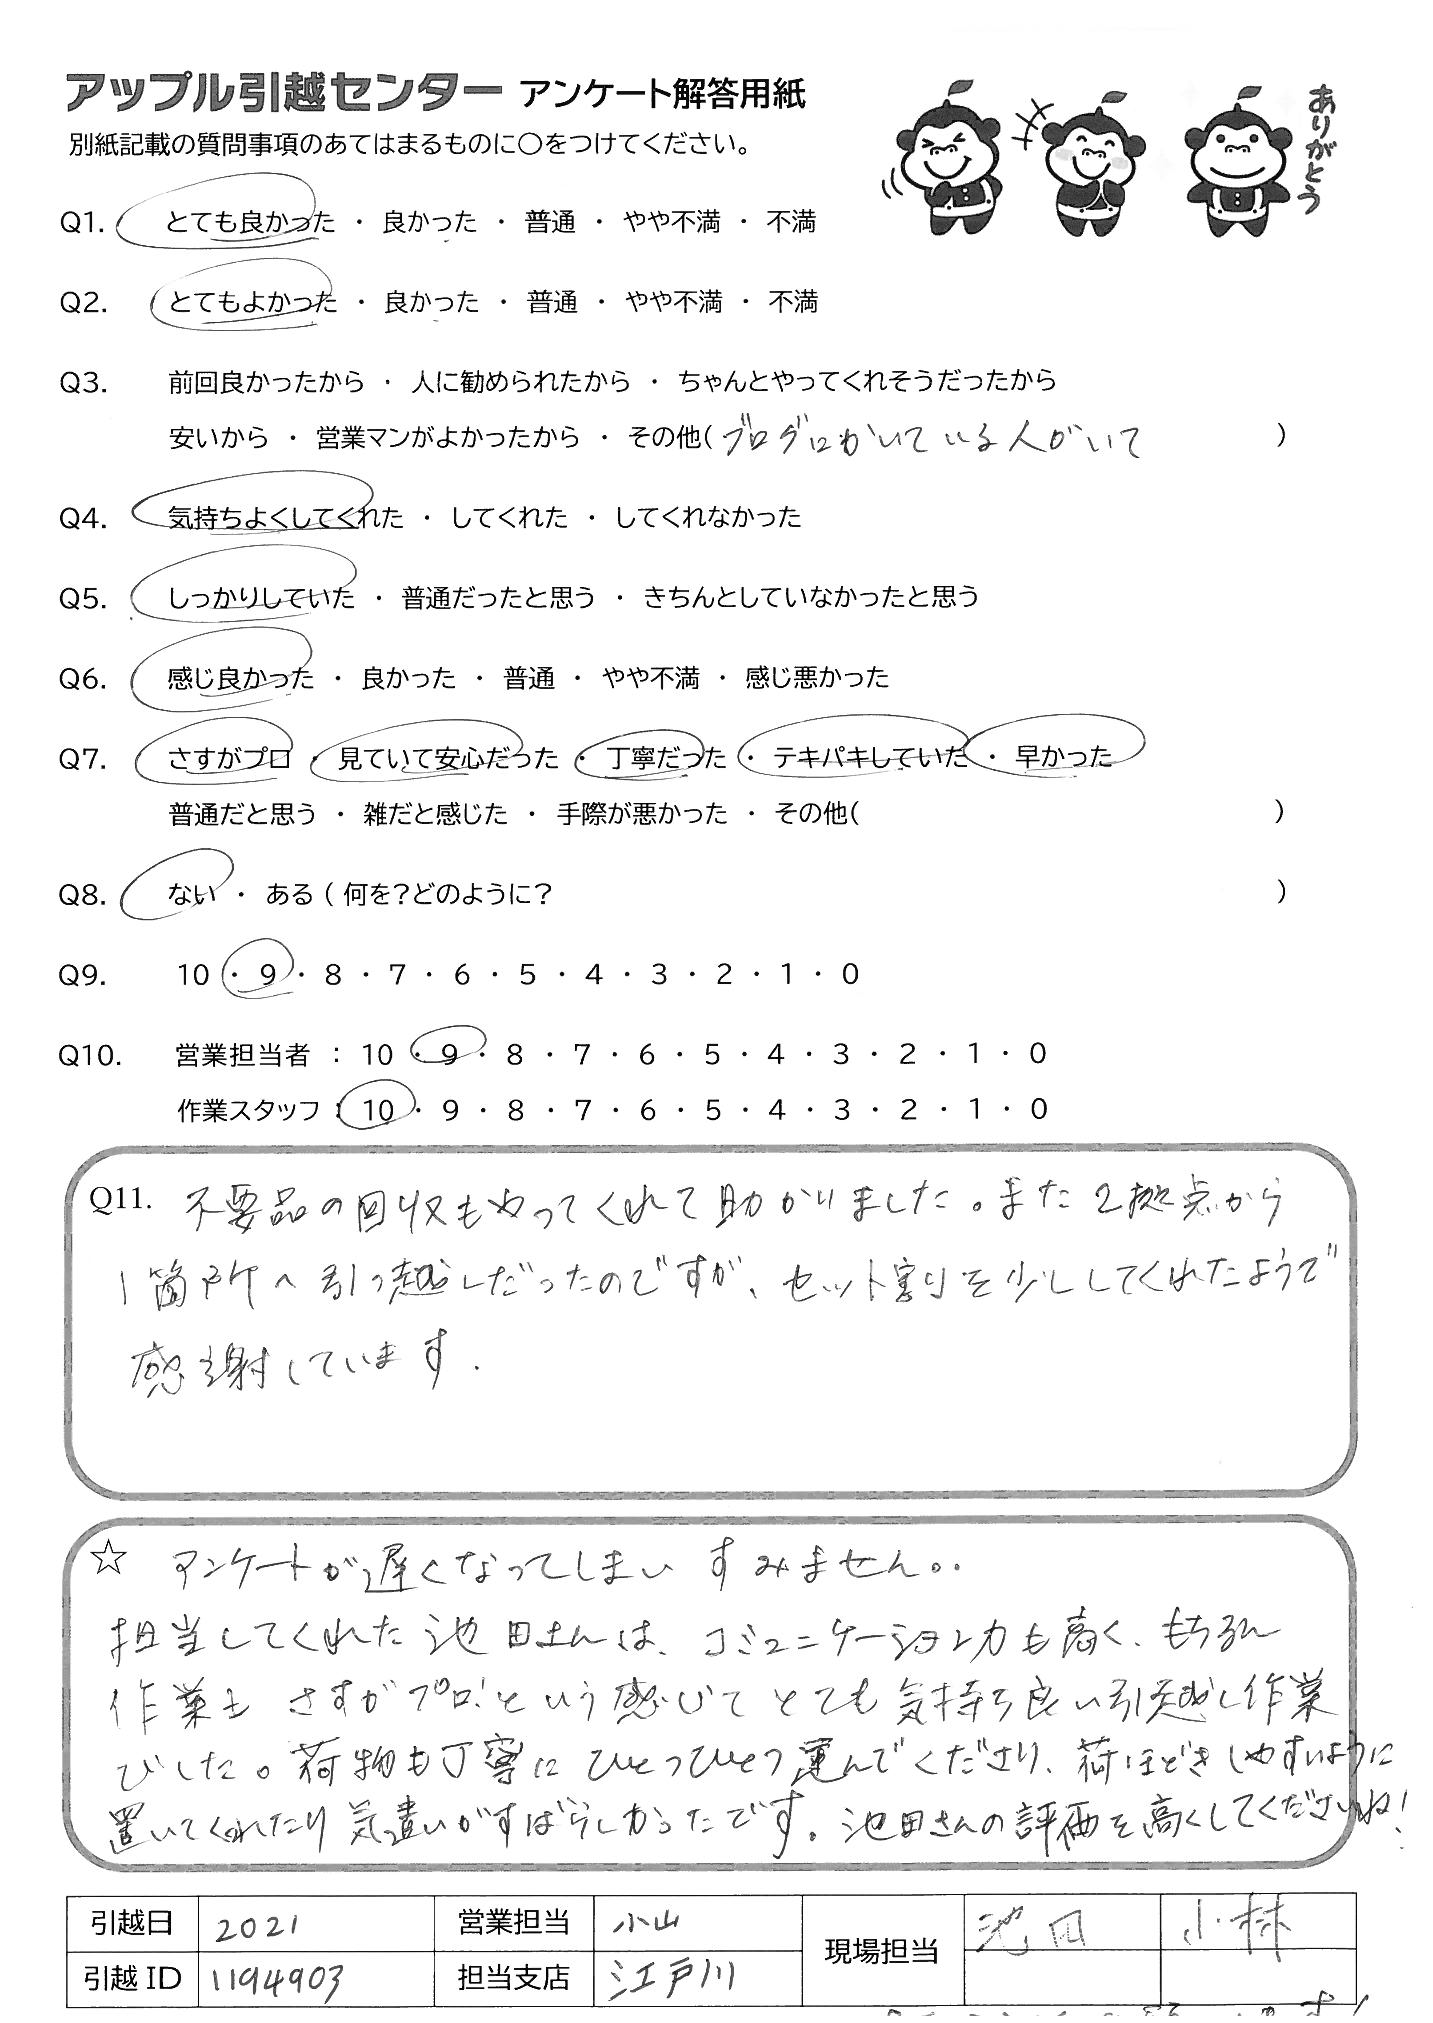 アップル引越センター アンケート解答用紙
ありがとう
別紙記載の質問事項のあてはまるものに○をつけてください。
Q1. とても良かった ・ 良かった ・ 普通 ・ やや不満 ・ 不満
Q2. とてもよかった ・ 良かった ・ 普通 ・ やや不満 ・ 不満
Q3. 前回良かったから ・ 人に勧められたから ・ ちゃんとやってくれそうだったから
安いから ・ 営業マンがよかったから ・ その他( ブログにかいている人がいて )
Q4. 気持ちよくしてくれた ・ してくれた ・ してくれなかった
Q5. しっかりしていた ・ 普通だったと思う ・ きちんとしていなかったと思う
Q6. 感じ良かった ・ 良かった ・ 普通 ・ やや不満 ・ 感じ悪かった
Q7. さすがプロ ・ 見ていて安心だった ・ 丁寧だった ・ テキパキしていた ・ 早かった
普通だと思う ・ 雑だと感じた ・ 手際が悪かった ・ その他( )
Q8. ない ・ ある ( 何を?どのように? )
Q9. 10 ・ 9 ・ 8 ・ 7 ・ 6 ・ 5 ・ 4 ・ 3 ・ 2 ・ 1 ・ 0
Q10. 営業担当者 : 10 ・ 9 ・ 8 ・ 7 ・ 6 ・ 5 ・ 4 ・ 3 ・ 2 ・ 1 ・ 0
作業スタッフ : 10 ・ 9 ・ 8 ・ 7 ・ 6 ・ 5 ・ 4 ・ 3 ・ 2 ・ 1 ・ 0
Q11. 不要品の回収もやってくれて助かりました。また2拠点から
1箇所へ引っ越しだったのですが、セット割りを少ししてくれたようで
感謝しています.
☆ アンケートが遅くなってしまい すみません。.
担当してくれた池田さんは、コミュニケーション力も高く、もちろん
作業も さすがプロ!という感じで とても気持ち良い引越し作業
でした。荷物も丁寧にひとつひとつ運んでくださり、荷ほどきしやすいように
置いてくれたり気遣いがすばらしかったです。池田さんの評価を高くしてくださいね!
引越日 2021 営業担当 小山 現場担当 池田 小林
引越ID 1194903 担当支店 江戸川